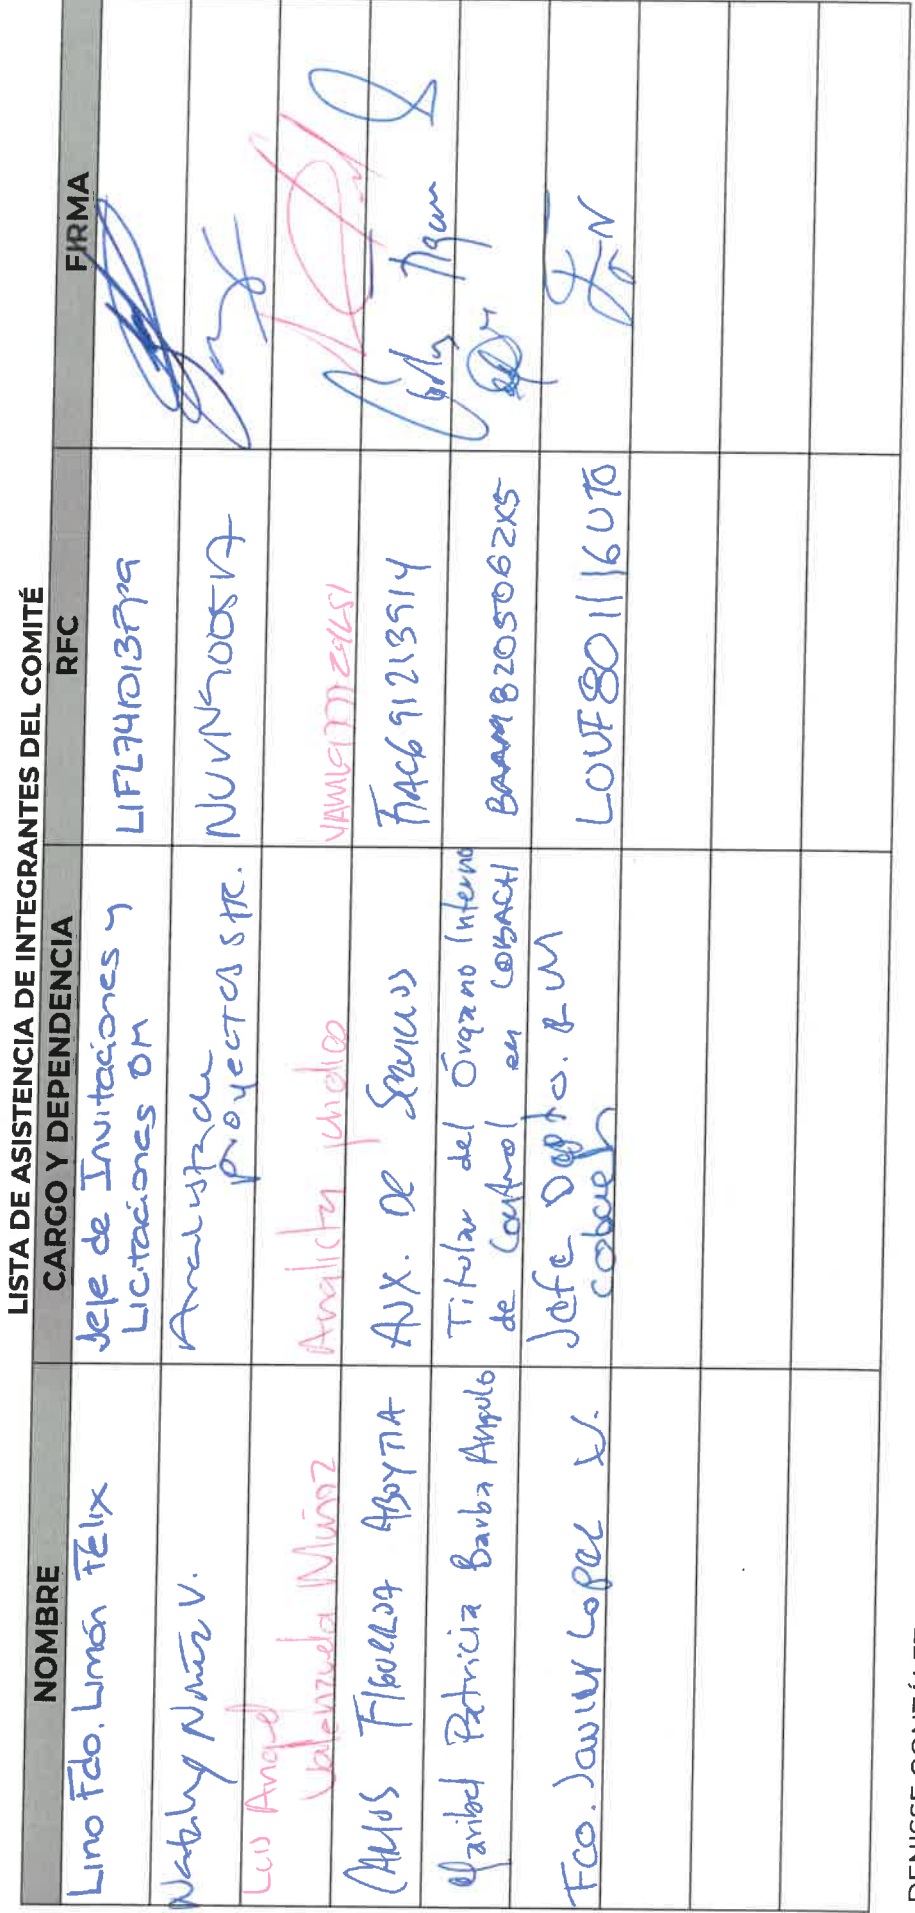 LISTA DE ASISTENCIA DE INTEGRANTES DEL COMITÉ
NOMBRE CARGO Y DEPENDENCIA RFC FIRMA
Lino Fdo. Limón Félix Jefe de Invitaciones y
Licitaciones OM
Nathaly Núñez V. Analista de
proyectos
Luis Angel
Valenzuela Muñoz Analista jurídico
CARLOS FIGUEROA ABOYTIA AUX. DE Servicios FIAC691213914
Maribel Patricia Barba Angulo Titular del Órgano Interno
de Control en COBACH BAAM8205062X5
Fco. Javier Lopez V. Jefe Depto. R M
cobach LOVF801116UT0